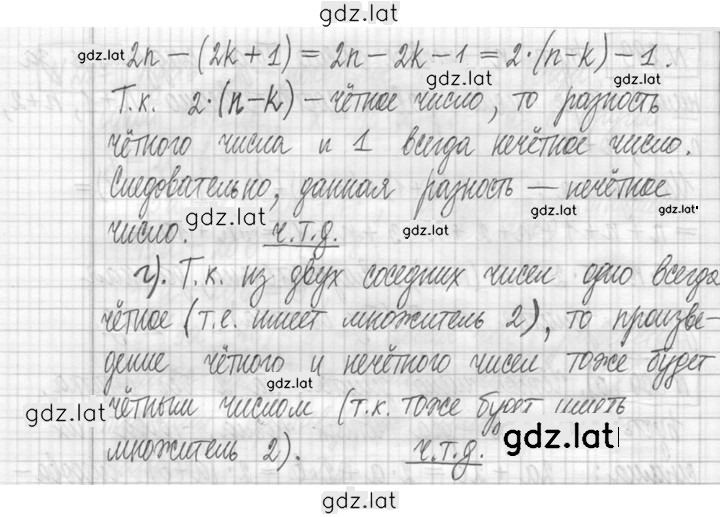 gdz.lat
gdz.lat 2n − (2k + 1) = 2n − 2k − 1 = 2·(n−k) − 1.
gdz.lat gdz.lat
Т.к. 2·(n−k) − чётное число, то разность
чётного числа и 1 всегда нечётное число.
Следовательно, данная разность — нечётное
gdz.lat gdz.lat gdz.lat
число. ч.т.д.
г). Т.к. из двух соседних чисел одно всегда
чётное (т.е. имеет множитель 2), то произве-
дение чётного и нечётного чисел тоже будет
gdz.lat
gdz.lat чётным числом (т.к. тоже будет иметь
множитель 2). ч.т.д. gdz.lat
gdz.lat